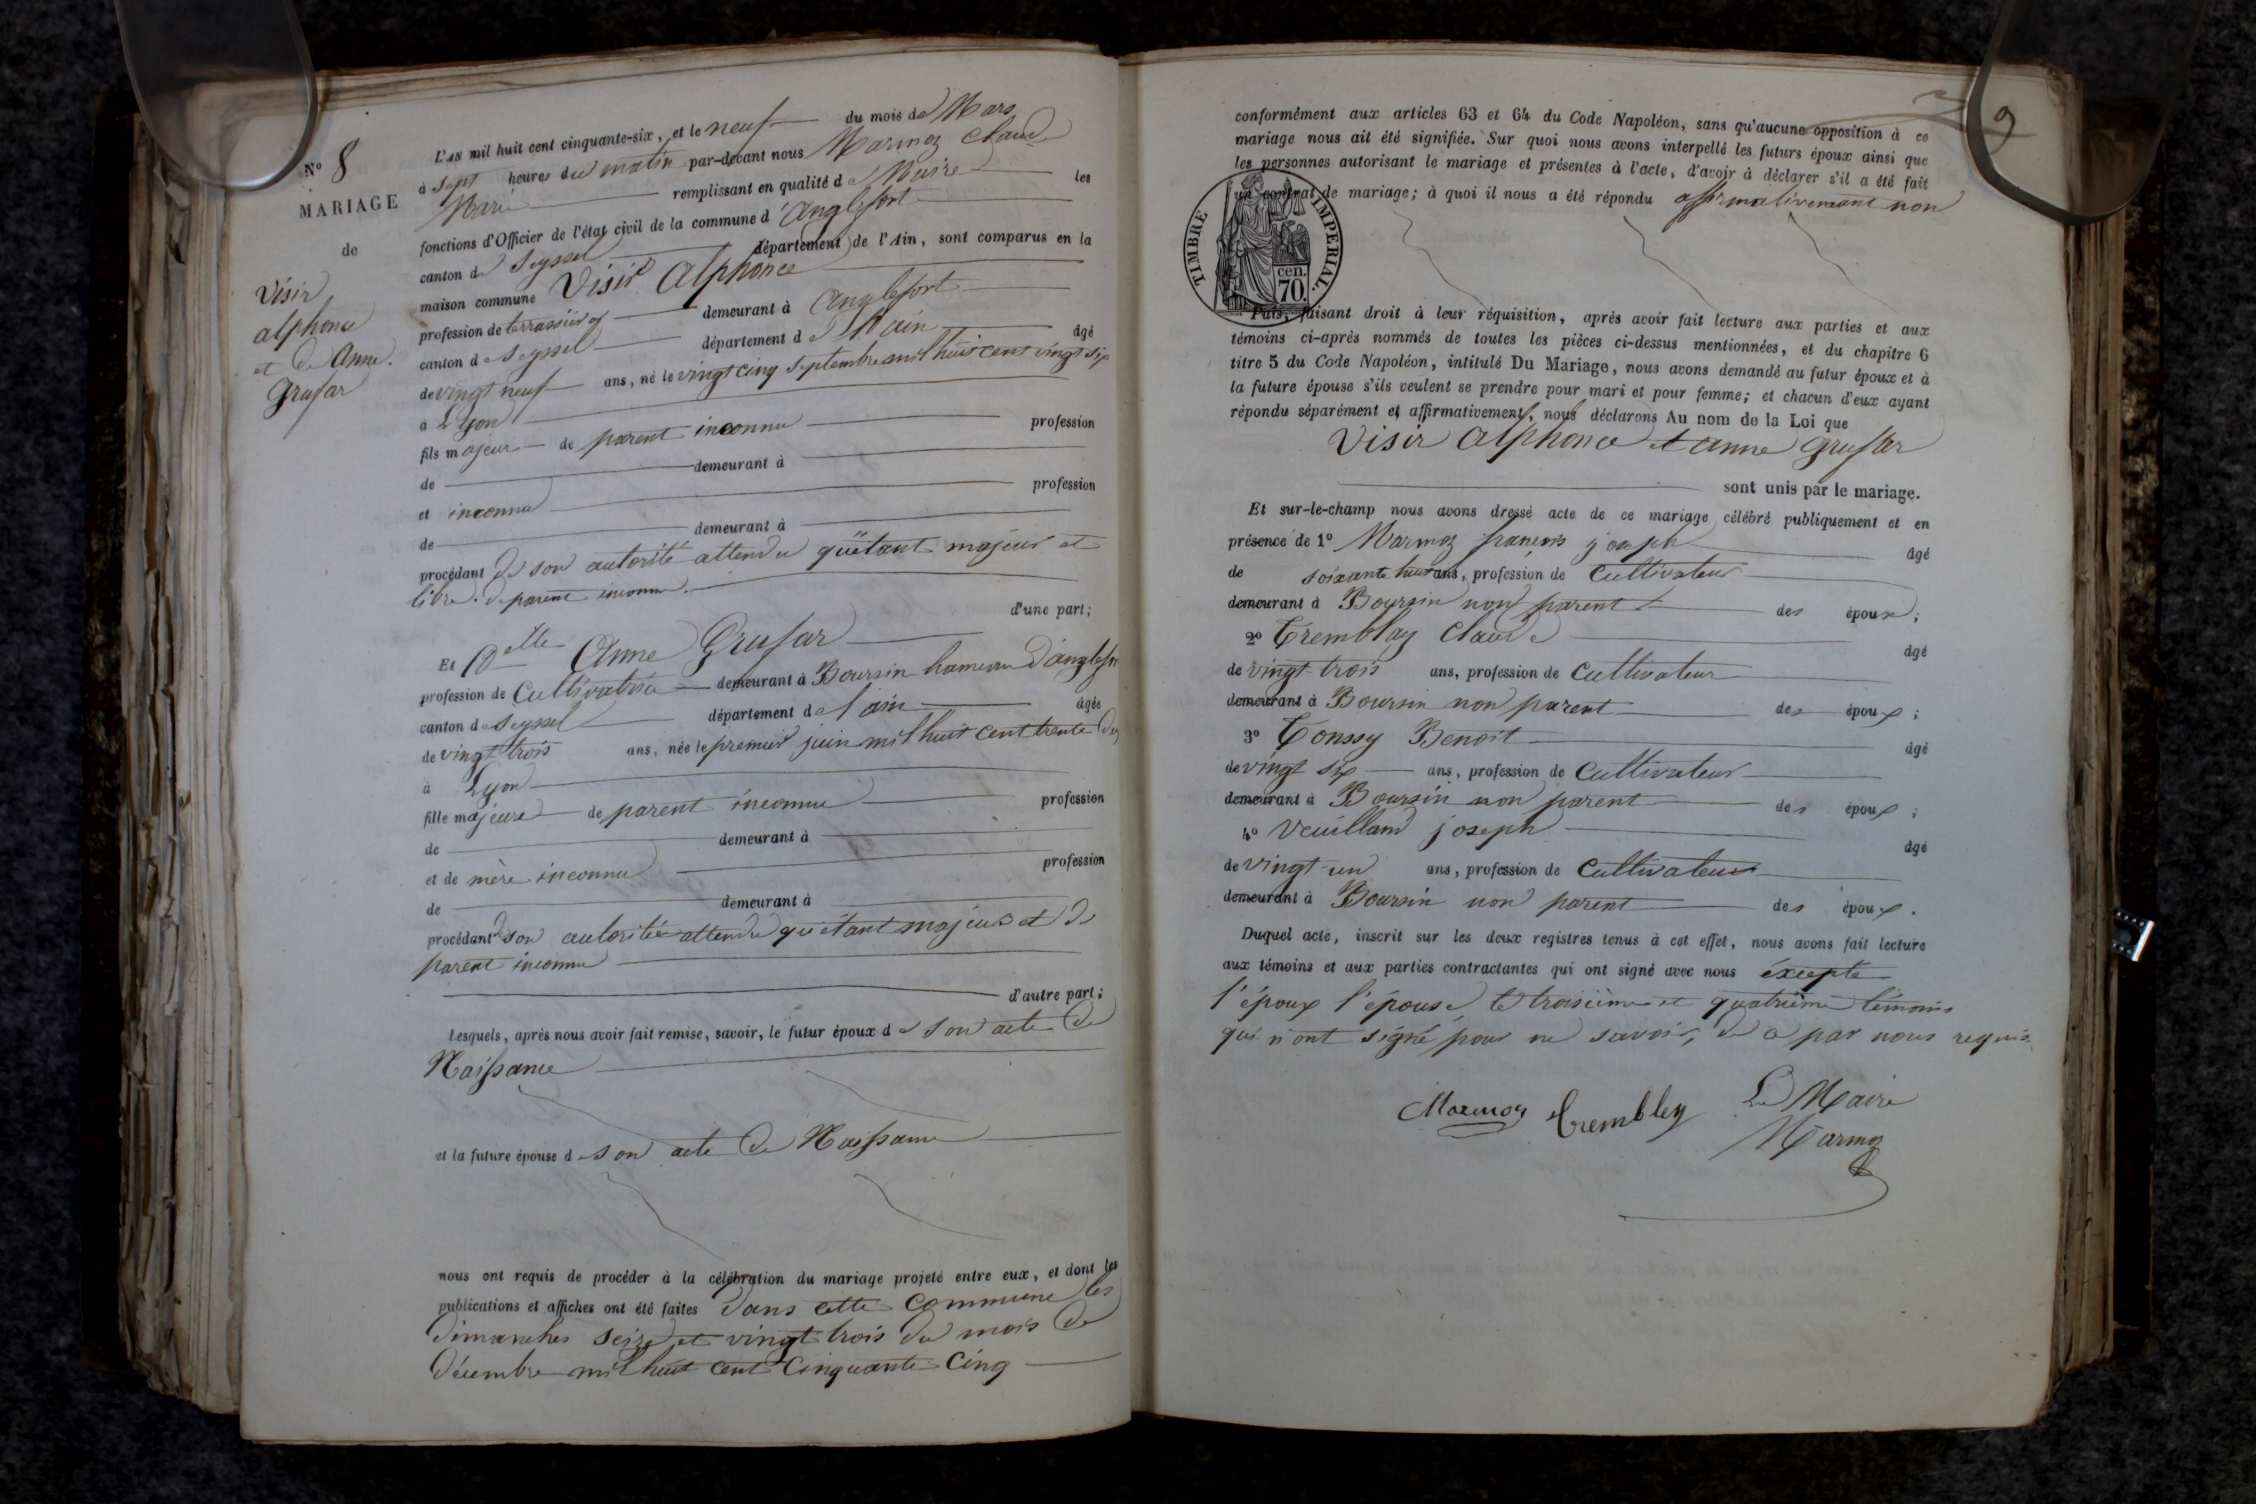 N° 8
MARIAGE
de
Visir
alphonce
et de Anne.
Grufar
L'AN mil huit cent cinquante-six, et le neuf du mois de Mars
à sept heures du matin par-devant nous Marmoz Claude
Marie remplissant en qualité de Maire les
fonctions d'Officier de l'état civil de la commune d'Anglefort
canton de Seyssel département de l'Ain, sont comparus en la
maison commune Visir Alphonce
profession de terrassier demeurant à Anglefort
canton de Seyssel département de l'ain âgé
de vingt neuf ans, né le vingt cinq septembre mil huit cent vingt six
à Lyon
fils majeur de parent inconnu profession
de demeurant à
et inconnu profession
de demeurant à
procédant de son autorité attendu qu'étant majeur et
libre. de parent inconnu.
d'une part;
Et Delle Anne Grufar
profession de Cultivatrice demeurant à Boursin hameau d'anglefort
canton de Seyssel département de l'ain âgée
de vingt trois ans, née le premier juin mil huit cent trente deux
à Lyon
fille majeure de parent inconnu profession
de demeurant à
et de mère inconnue profession
de demeurant à
procédant de son autoritée attendu qu'étant majeur et de
parent inconnu
d'autre part;
Lesquels, après nous avoir fait remise, savoir, le futur époux de son acte de
Naissance
et la future épouse de son acte de Naissance
nous ont requis de procéder à la célébration du mariage projeté entre eux, et dont les
publications et affiches ont été faites dans cette commune les
dimanches seize et vingt trois du mois de
décembre mil huit cent cinquante cinq
9
conformément aux articles 63 et 64 du Code Napoléon, sans qu'aucune opposition à ce
mariage nous ait été signifiée. Sur quoi nous avons interpellé les futurs époux ainsi que
les personnes autorisant le mariage et présentes à l'acte, d'avoir à déclarer s'il a été fait
un contrat de mariage; à quoi il nous a été répondu affirmativement non
TIMBRE IMPERIAL.
70. cen.
Puis, faisant droit à leur réquisition, après avoir fait lecture aux parties et aux
témoins ci-après nommés de toutes les pièces ci-dessus mentionnées, et du chapitre 6
titre 5 du Code Napoléon, intitulé Du Mariage, nous avons demandé au futur époux et à
la future épouse s'ils veulent se prendre pour mari et pour femme; et chacun d'eux ayant
répondu séparément et affirmativement, nous déclarons Au nom de la Loi que
Visir Alphonce et Anne Grufar
sont unis par le mariage.
Et sur-le-champ nous avons dressé acte de ce mariage célébré publiquement et en
présence de 1° Marmoz françois joseph âgé
de soixante huit ans, profession de Cultivateur
demeurant à Boursin non parent des époux;
2° Tremblay Claude âgé
de vingt trois ans, profession de Cultivateur
demeurant à Boursin non parent des époux;
3° Toussy Benoit âgé
de vingt six ans, profession de Cultivateur
demeurant à Boursin non parent des époux;
4° Veuilland joseph âgé
de vingt un ans, profession de Cultivateur
demeurant à Boursin non parent des époux.
Duquel acte, inscrit sur les deux registres tenus à cet effet, nous avons fait lecture
aux témoins et aux parties contractantes qui ont signé avec nous éxcepté
l'époux l'épouse, le troisième et quatrième témoins
qui n'ont signé pour ne savoir, de ce par nous requis
Marmoz Trembley Le Maire
Marmoz